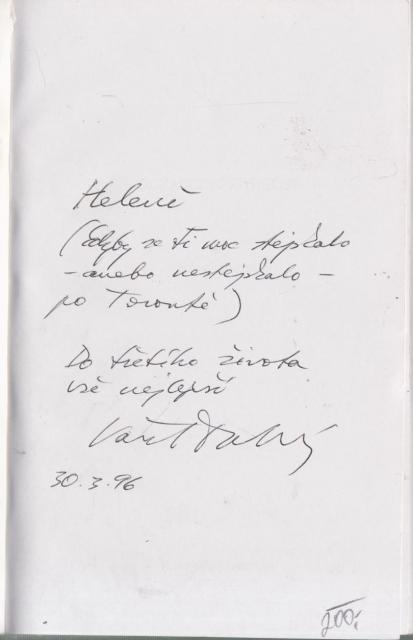 Heleně
(Kdyby se ti moc stejskalo
– anebo nestejskalo –
po Torontě)
Do třetího života
vše nejlepší
30.3.96
200,-